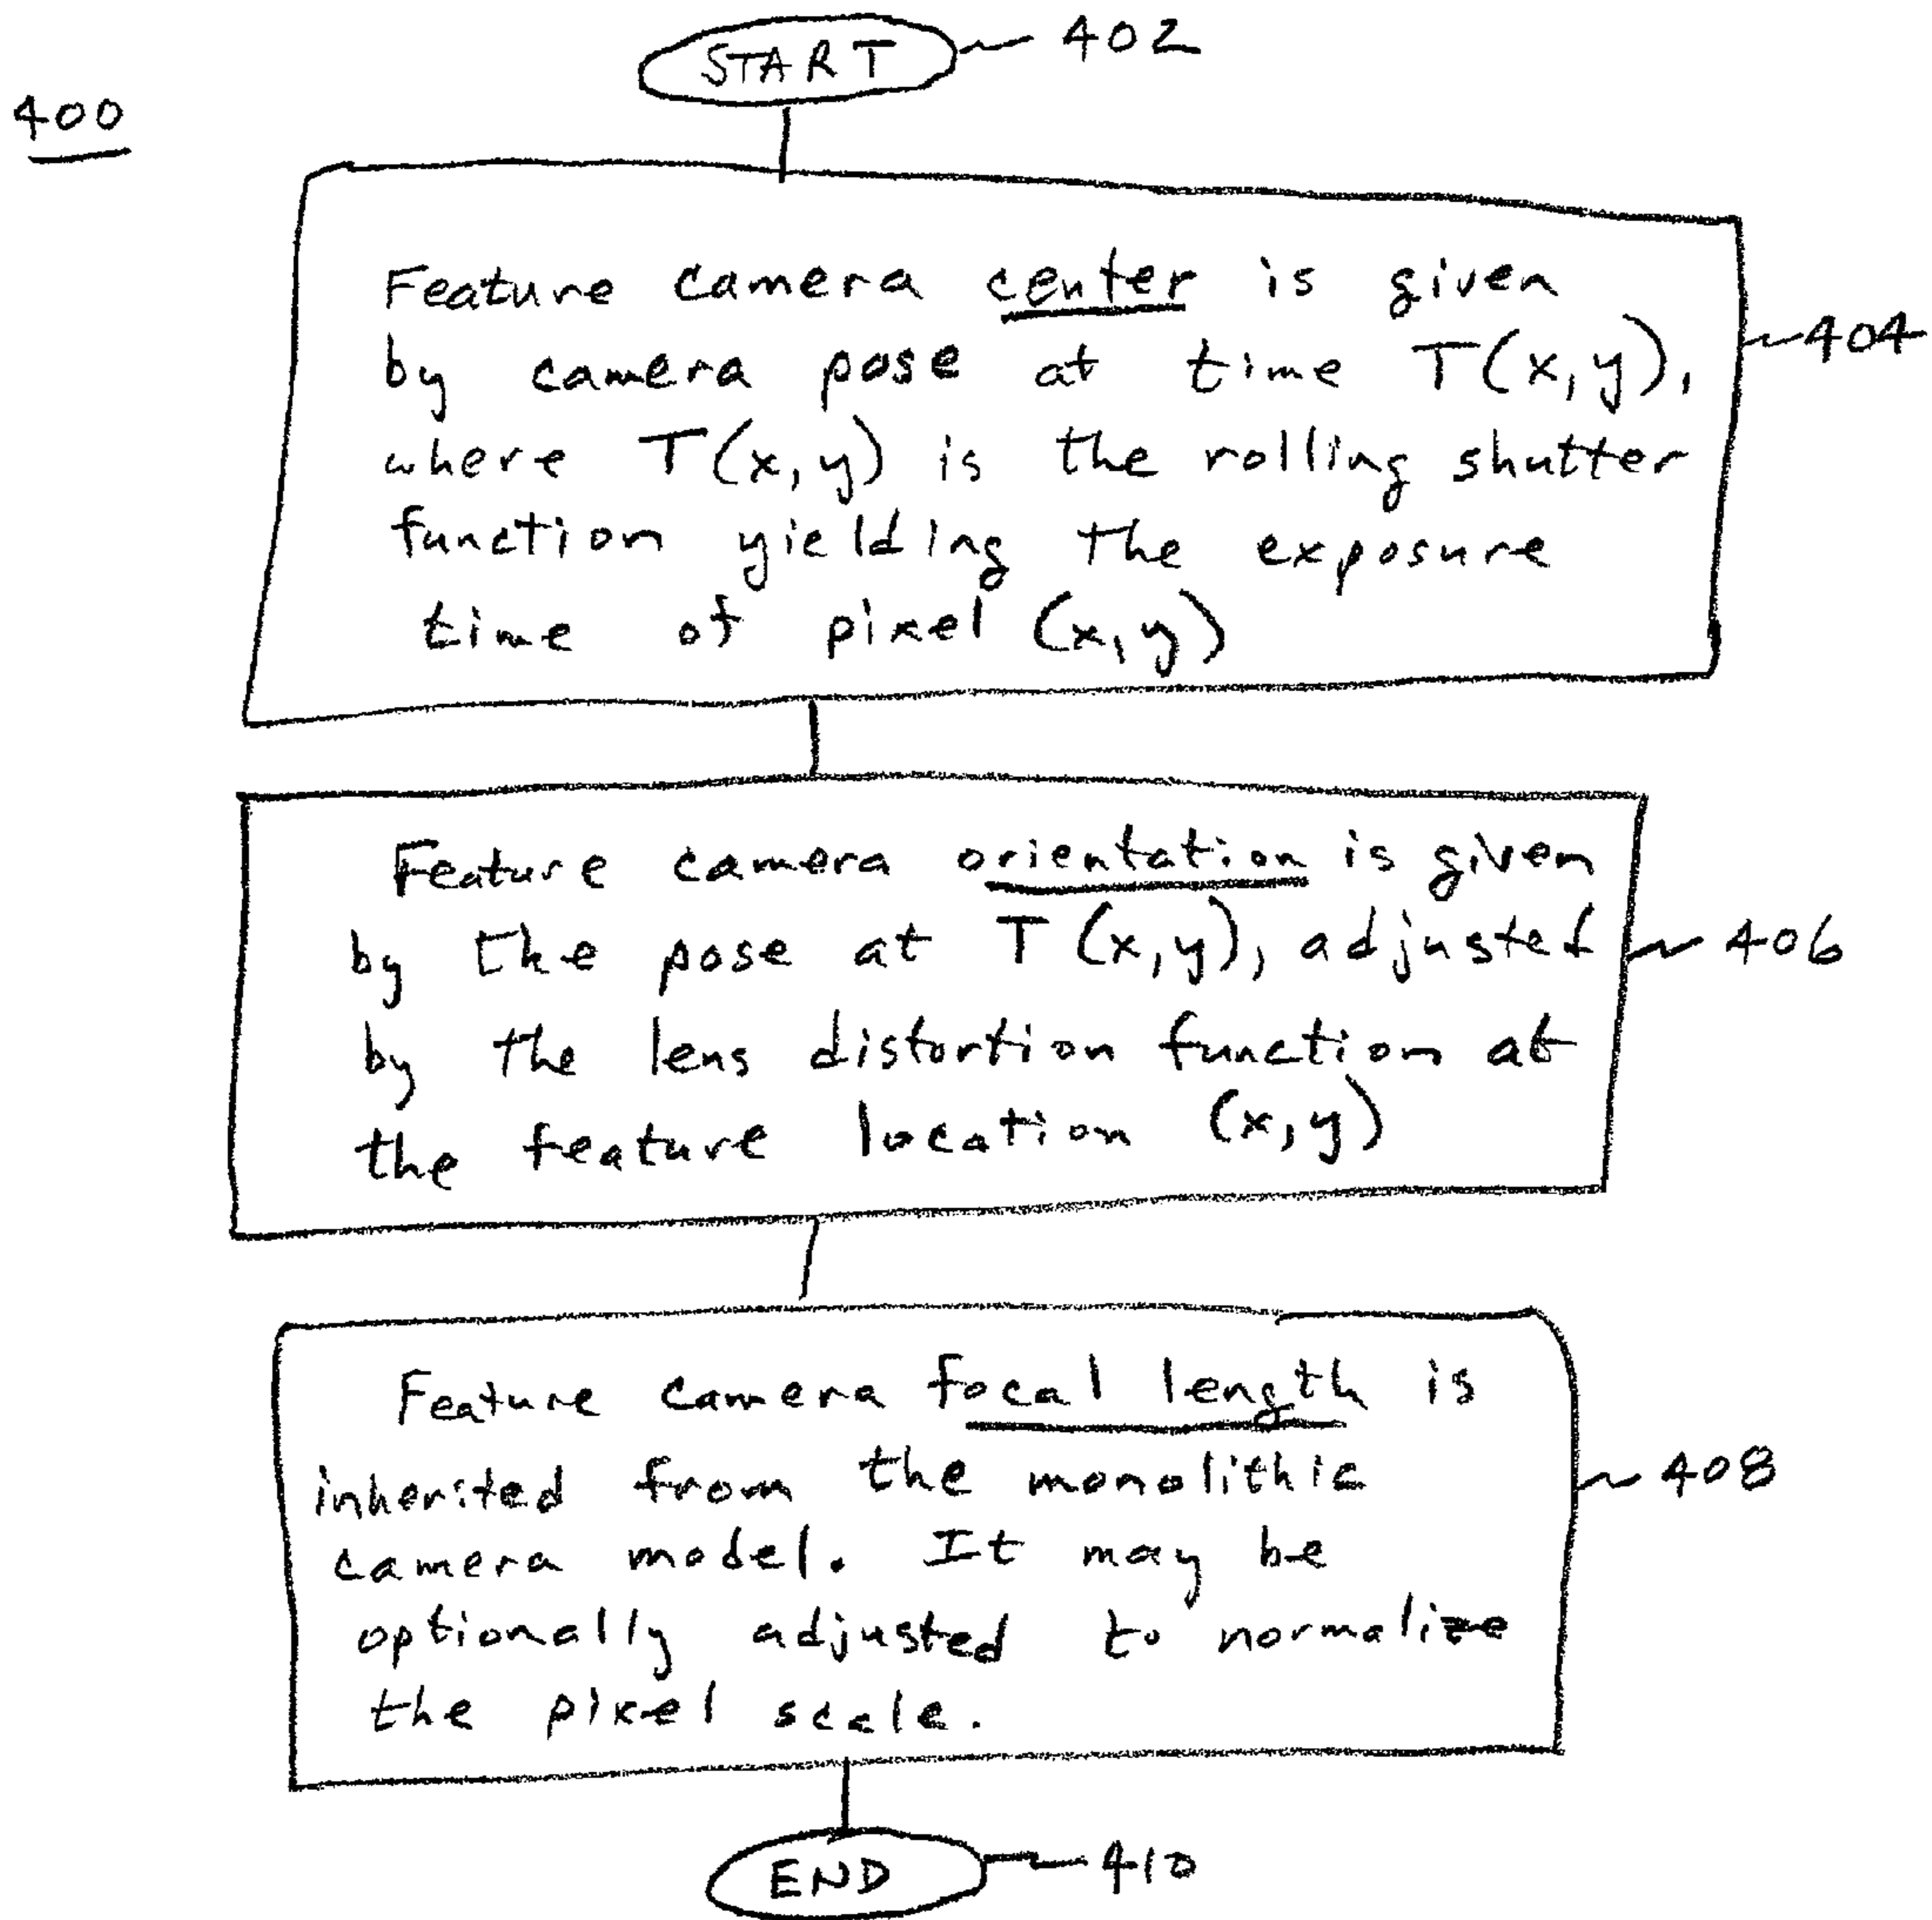 START 402
400
Feature camera center is given
by camera pose at time T(x,y),
404
where T(x,y) is the rolling shutter
function yielding the exposure
time of pixel (x,y)
Feature camera orientation is given
by the pose at T(x,y), adjusted
406
by the lens distortion function at
the feature location (x,y)
Feature camera focal length is
inherited from the monolithic
408
camera model. It may be
optionally adjusted to normalize
the pixel scale.
END 410